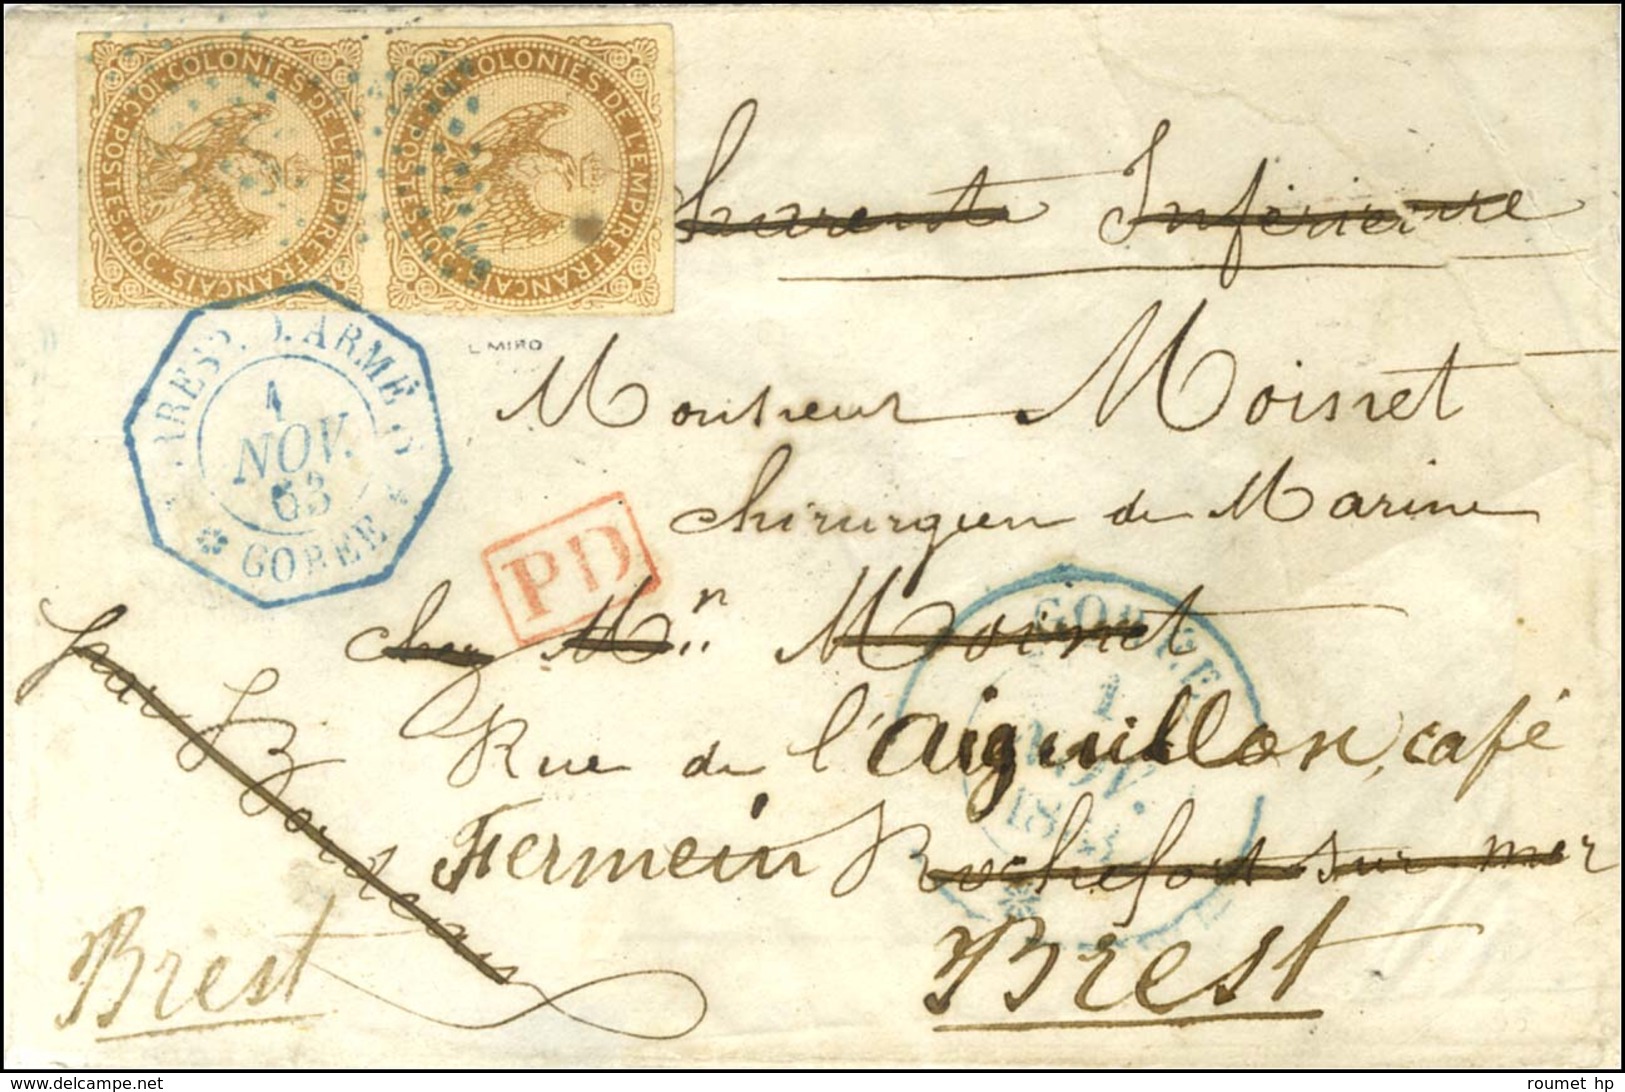 COLONIES DE L'EMPIRE FRANÇAIS · POSTES · 10c · 10c
COLONIES DE L'EMPIRE FRANÇAIS · POSTES · 10c · 10c
Charente Inférieure
CORRESP. D. ARMÉES
1
NOV.
63
GOREE
L MIRO
Monsieur Moinet
Chirurgien de Marine
PD
chez Mr. Moinet
GOREE
1
NOV.
Rue de l'Aiguillon, café
Fermein Rochefort sur mer
par Bordeaux
Brest
Brest
roumet hp